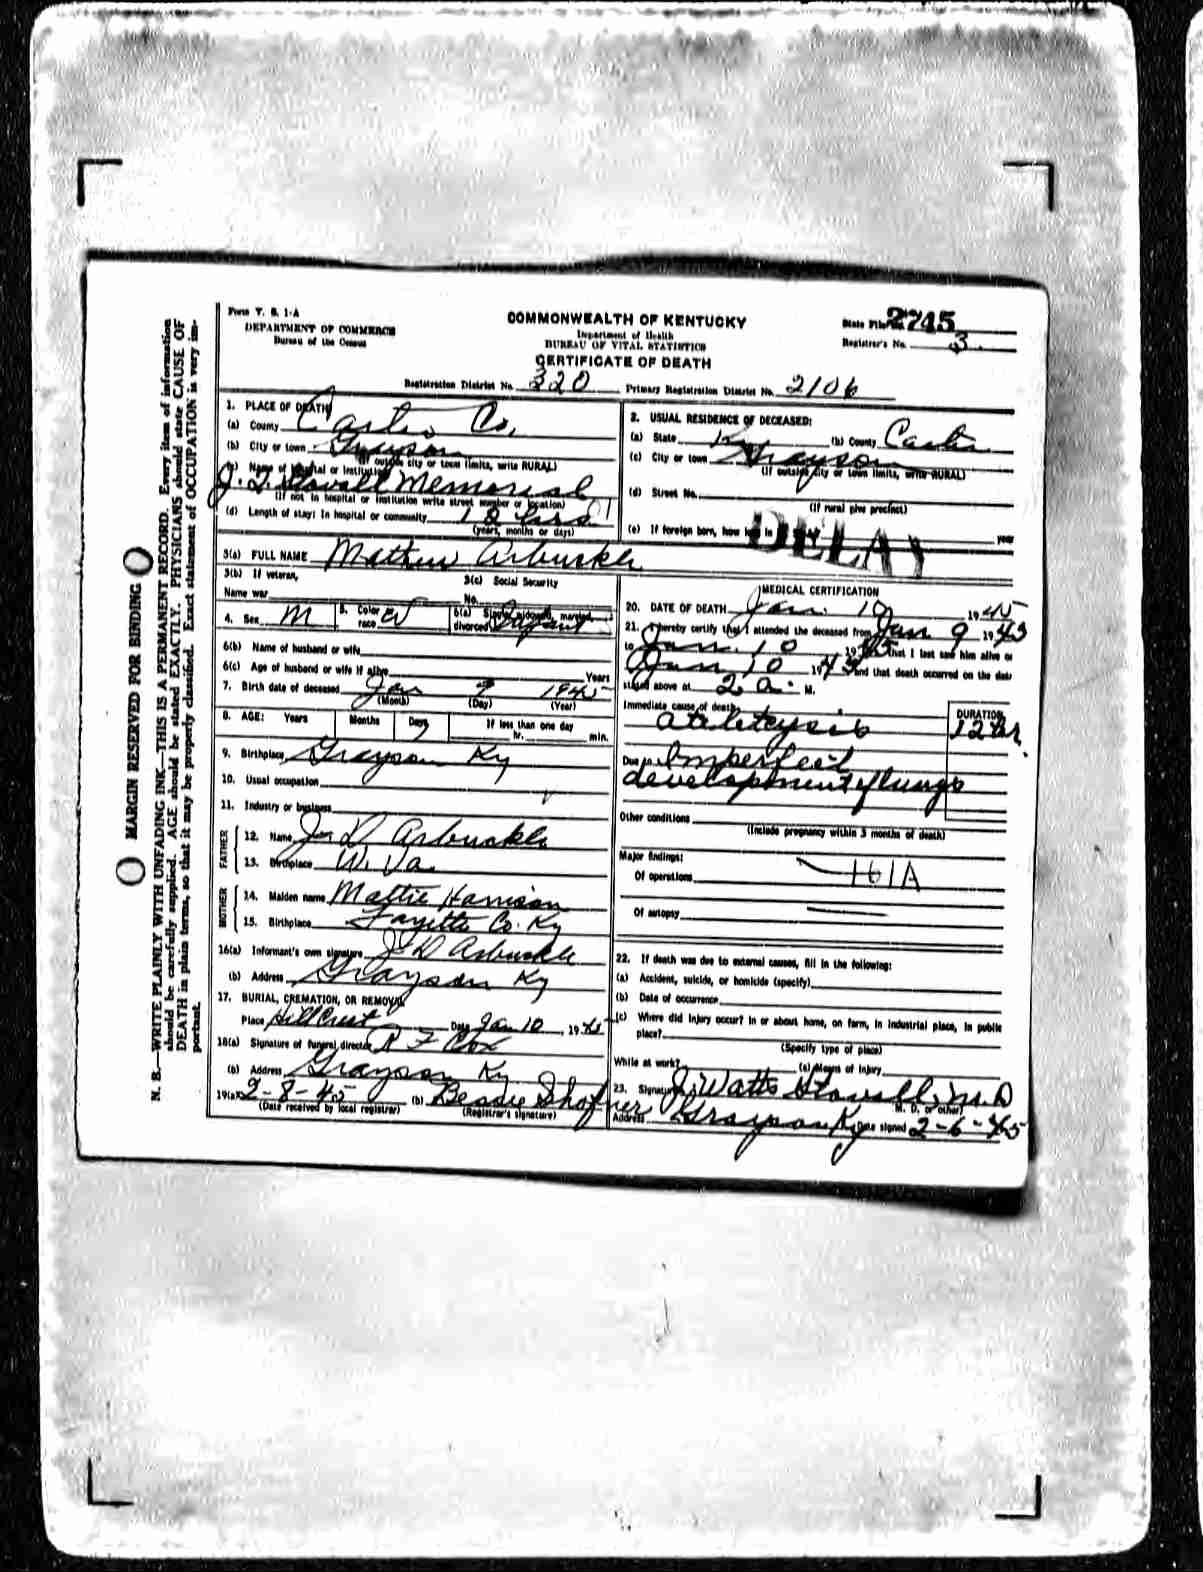 Form V. S. 1-A
DEPARTMENT OF COMMERCE
Bureau of the Census
COMMONWEALTH OF KENTUCKY
Department of Health
BUREAU OF VITAL STATISTICS
CERTIFICATE OF DEATH
State File No. 2745
Registrar's No. 3
Registration District No. 320 Primary Registration District No. 2106
1. PLACE OF DEATH
(a) County Carter Co.
(b) City or town Grayson
(If outside city or town limits, write RURAL)
(c) Name of hospital or institution
J. Q. Stovall Memorial
(If not in hospital or institution write street number or location)
(d) Length of stay: In hospital or community 12 hrs
(years, months or days)
2. USUAL RESIDENCE OF DECEASED:
(a) State Ky (b) County Carter
(c) City or town Grayson
(If outside city or town limits, write RURAL)
(d) Street No.
(If rural give precinct)
(e) If foreign born, how long in year
DELAY
3(a) FULL NAME Mathew Arbuckle
3(b) If veteran,
Name war
3(c) Social Security
No.
4. Sex M 5. Color or race W 6(a) Single, widowed, married, divorced Infant
6(b) Name of husband or wife
6(c) Age of husband or wife if alive Years
7. Birth date of deceased Jan 9 1945
(Month) (Day) (Year)
8. AGE: Years Months Days If less than one day
hr. min.
9. Birthplace Grayson Ky
10. Usual occupation
11. Industry or business
FATHER
12. Name J. D. Arbuckle
13. Birthplace W. Va
MOTHER
14. Maiden name Mattie Harrison
15. Birthplace Fayette Co. Ky
16(a) Informant's own signature J D Arbuckle
(b) Address Grayson Ky
17. BURIAL, CREMATION, OR REMOVAL
Place Hill Crest Date Jan 10, 1945
18(a) Signature of funeral director R F Cox
(b) Address Grayson Ky
19(a) 2-8-45 (b) Bessie Shofner
(Date received by local registrar) (Registrar's signature)
MEDICAL CERTIFICATION
20. DATE OF DEATH Jan. 10 1945
21. I hereby certify that I attended the deceased from Jan 9 1945
to Jan. 10 1945 that I last saw him alive on
Jan 10 1945 and that death occurred on the date
stated above at 2 a. M.
Immediate cause of death DURATION
atelectysis 12 hr.
Due to Imperfect
development of lungs
Other conditions
(Include pregnancy within 3 months of death)
Major findings:
Of operations 161A
Of autopsy
22. If death was due to external causes, fill in the following:
(a) Accident, suicide, or homicide (specify)
(b) Date of occurrence
(c) Where did injury occur? In or about home, on farm, in industrial place, in public
place?
(Specify type of place)
While at work? (e) Means of injury
23. Signature J. Watts Stovall, M.D
(M. D. or other)
Address Grayson Ky Date signed 2-6-45
MARGIN RESERVED FOR BINDING
N. B.—WRITE PLAINLY WITH UNFADING INK—THIS IS A PERMANENT RECORD. Every item of information
should be carefully supplied. AGE should be stated EXACTLY. PHYSICIANS should state CAUSE OF
DEATH in plain terms, so that it may be properly classified. Exact statement of OCCUPATION is very im-
portant.